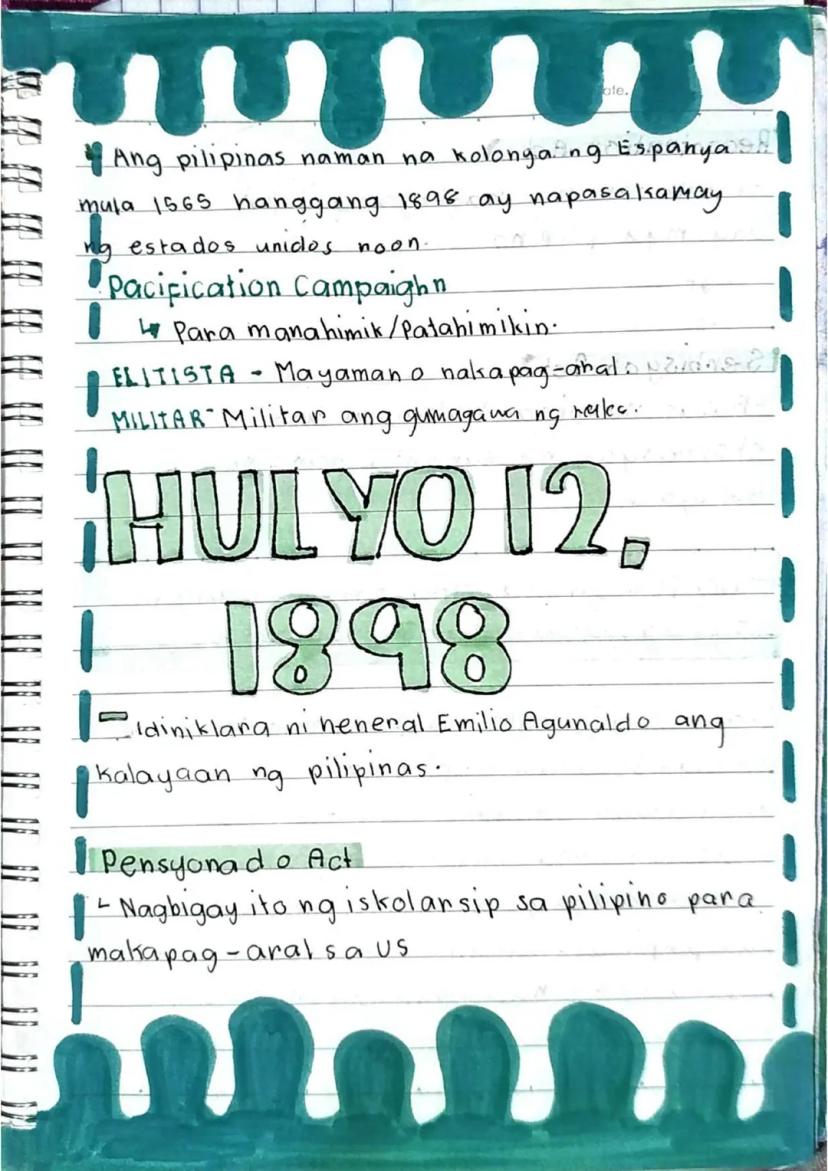 Ang pilipinas naman na kolonga ng Espanya
mula 1565 hanggang 1898 ay napasakamay
ng estados unidos noon.
Pacification Campaighn
↳ Para manahimik/Patahimikin.
ELITISTA - Mayaman o nakapag-aral.
MILITAR - Militar ang gumagawa ng
HULYO 12,
1898
- Idiniklara ni heneral Emilio Agunaldo ang
kalayaan ng pilipinas.
Pensyonado Act
└ Nagbigay ito ng iskolarsip sa pilipino para
makapag-aral sa US